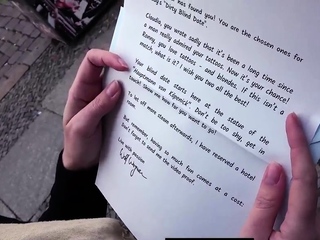 was found you! You are the chosen ones for
"Dirty Blind Date".
Claudia, you wrote sadly that it's been a long time since
a man really admired your tattoos. Now it's your chance!
Ronny, you love tattoos - and blondes. If this isn't a
match, what is it? I wish you two all the best!
Your blind date starts here at the statue of the
"Hauptmann von Köpenick". Don't be too shy, get in
touch! Show me how far you want to go!
To let off more steam afterwards, I have reserved a hotel
But remember, having so much fun comes at a cost:
Don't forget to send me the video proof.